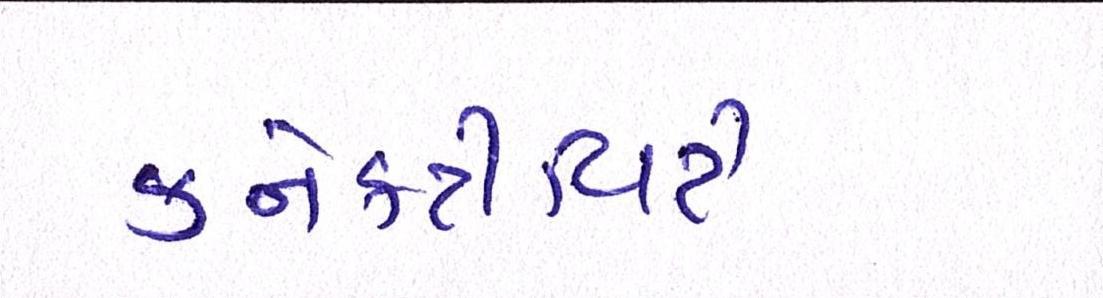 કનેક્ટીવિટી